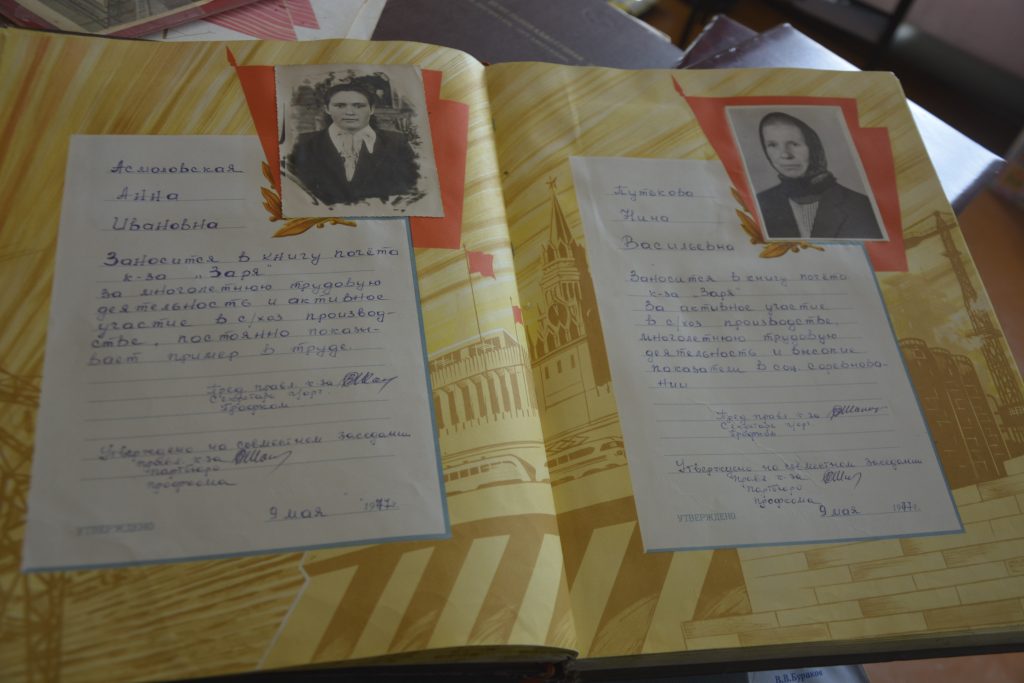 Асмоловская
Анна
Ивановна
Заносится в книгу почёта
к-за „Заря"
за многолетнюю трудовую
деятельность и активное
участие в с/хоз производ-
стве, постоянно показы-
вает пример в труде.
Пред правл. к-за
Секретарь п/орг
Профком
Утверждено на совместном заседании
правл. к-за
партбюро
профкома
9 мая 1977 г.
УТВЕРЖДЕНО
Путекова
Нина
Васильевна
Заносится в книгу почёта
к-за „Заря"
За активное участие
в с/хоз производстве,
многолетнюю трудовую
деятельность и высокие
показатели в соц. соревнова-
нии
Пред правл. к-за
Секретарь п/орг
Профком
Утверждено на совместном заседании
правл. к-за
партбюро
профкома
9 мая 1977 г.
УТВЕРЖДЕНО
В.В.Бураков